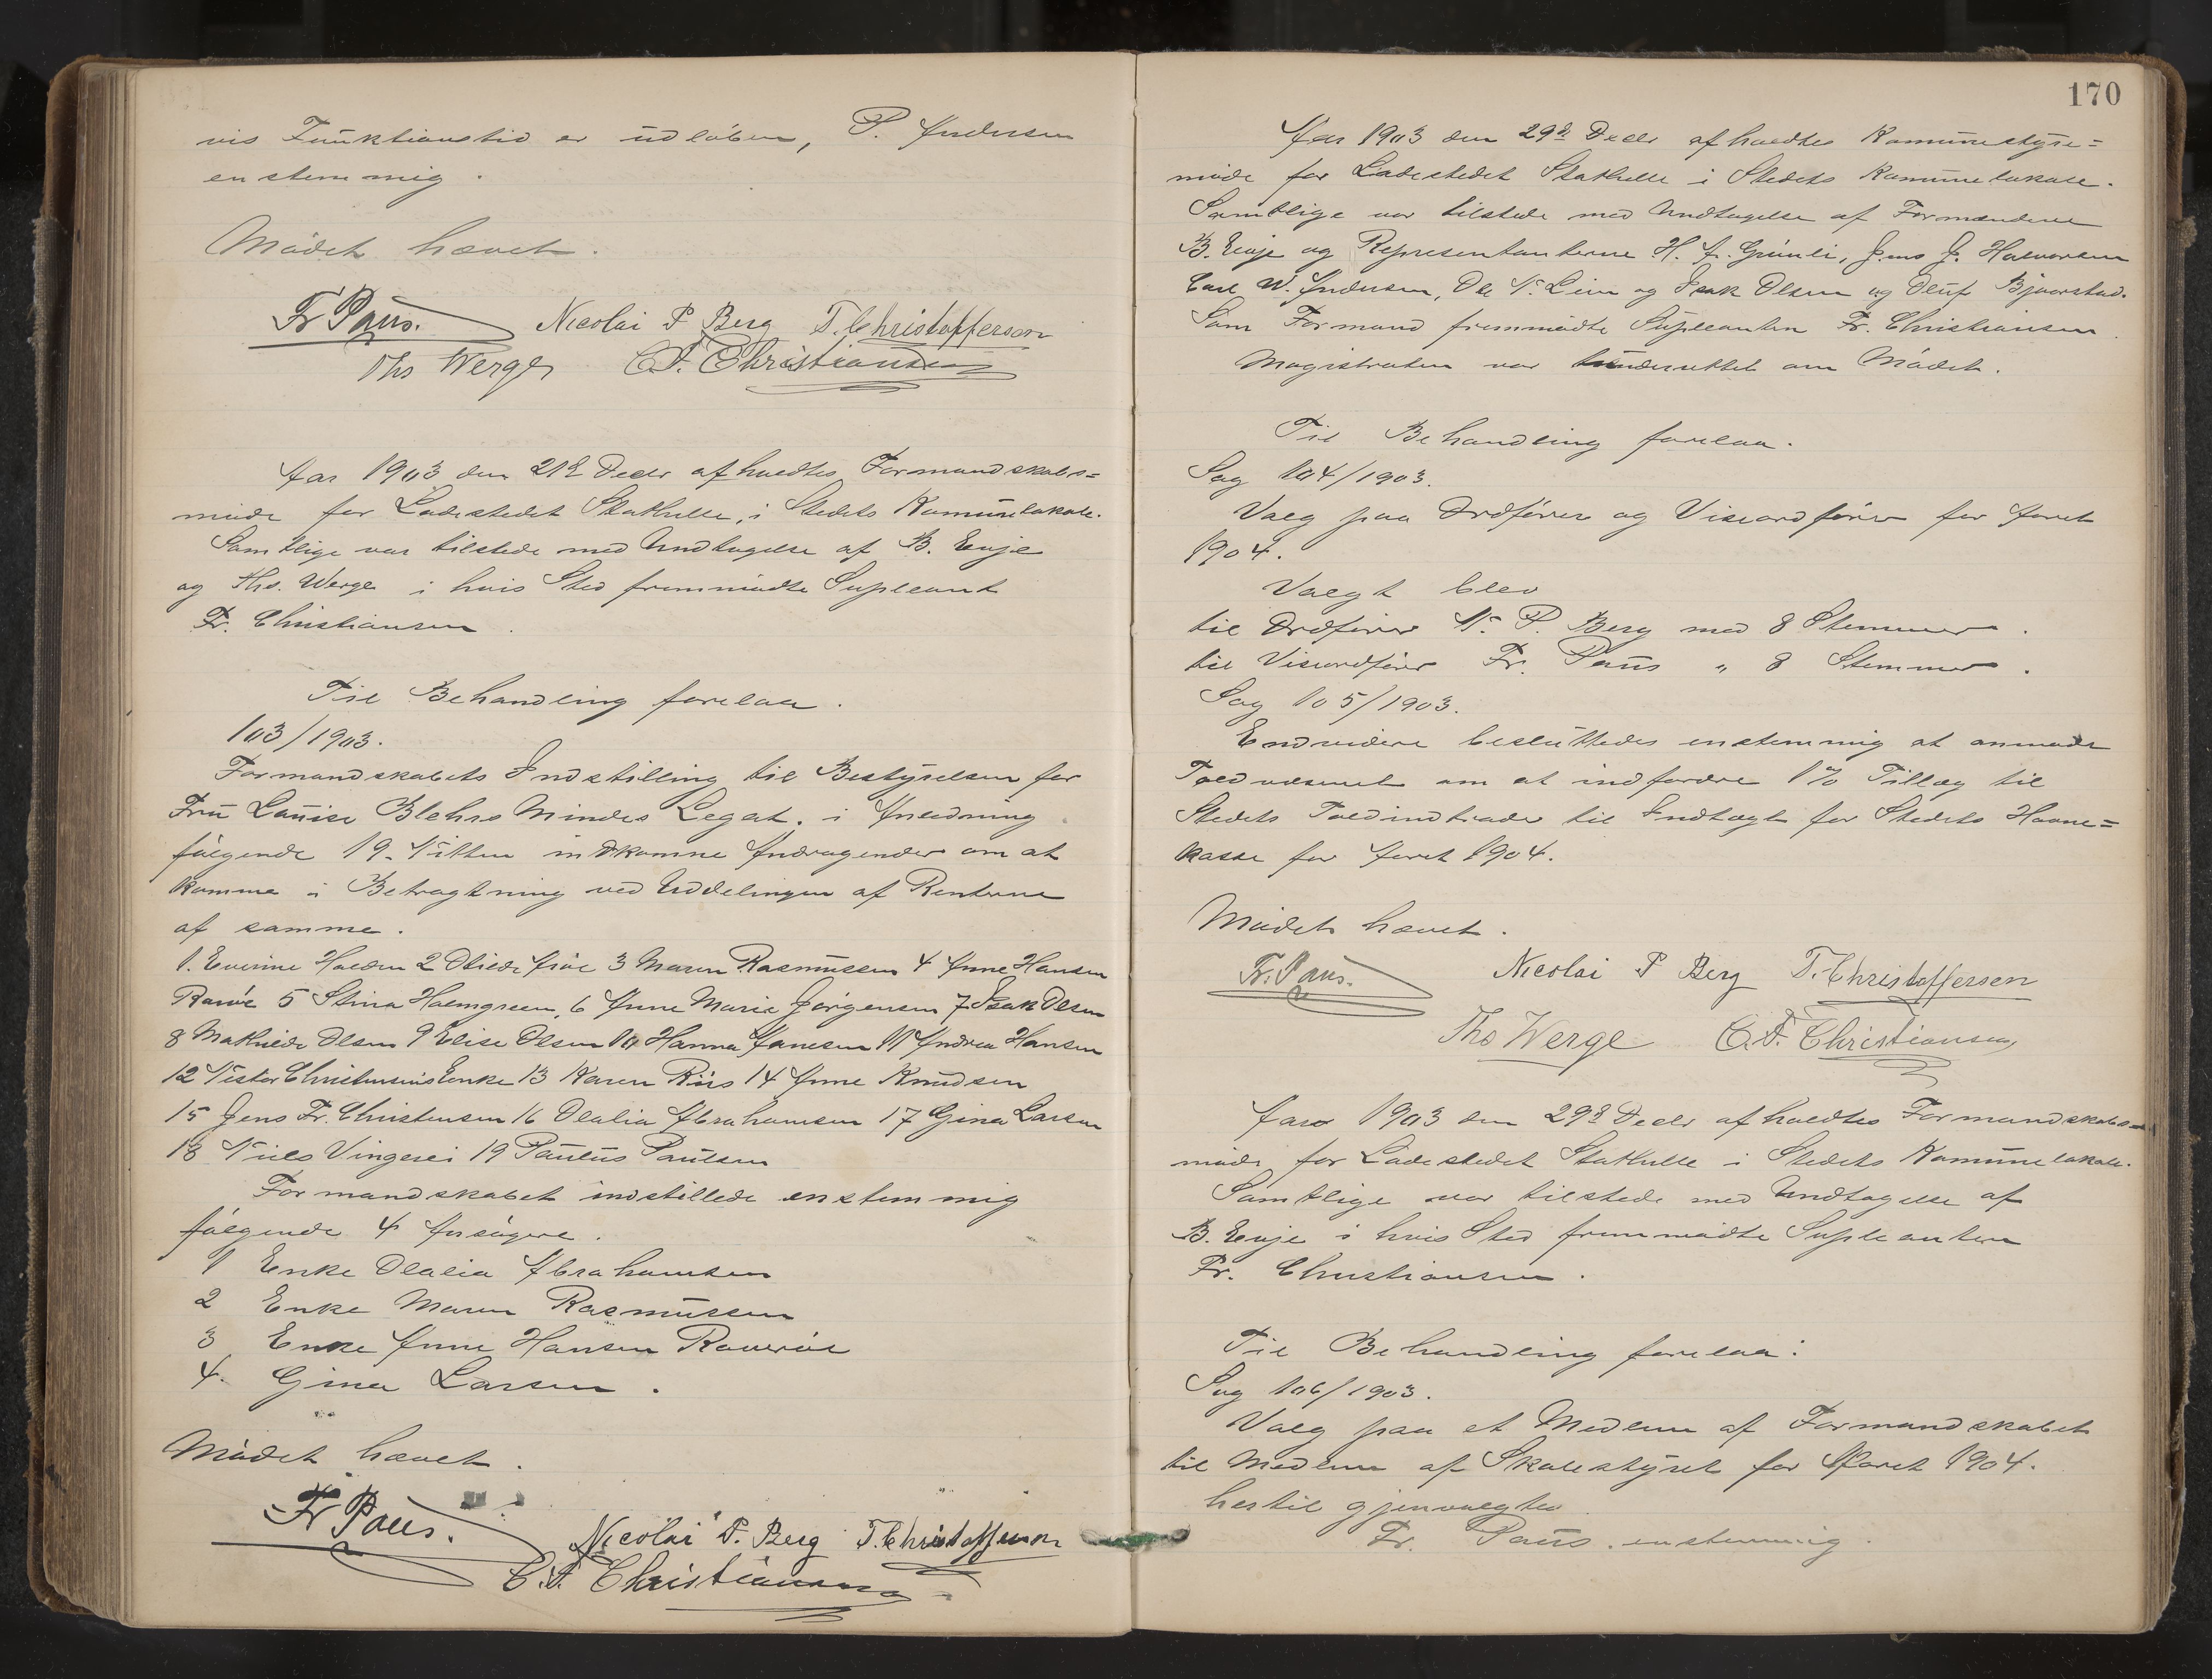 vis Funktionstid er udløben, P. Andersen
enstemmig.
Mødet hævet.
Fr Paus. Nicolai P Berg T. Christoffersen
Ths Werge C. F. Christiansen
Aar 1903 den 21de Decbr afholdtes Formandskabs=
møde for Ladestedet Stathelle, i Stedets Kommunelokale.
Samtlige var tilstede med Undtagelse af B. Euje
og Ths. Werge i hvis Sted fremmødte Supleant
Fr. Christiansen.
Til Behandling forelaa.
103/1903.
Formandskabets Indstilling til Bestyrelsen for
Fru Lauise Blehrs Mindes Legat. i Anledning
følgende 19. Nitten indkomne Andragender om at
komme i Betragtning ved Uddelingen af Renterne
af samme.
1. Everine Halden 2 Otilde 3 Maren Rasmussen 4 Anne Hansen
5 Stina Holmgreen, 6 Anne Marie Jørgensen 7 Isak Olsen
8 Mathilde Olsen 9 Elise Olsen 10 Hanna Hansen 11 Andrea Hansen
12 Enke 13 Karen Riis 14 Anne Knudsen
15 Jens Fr. Christensen 16 Olalia Abrahamsen 17 Gina Larsen
18 Niels Vingerei 19 Paulus Paulsen
Formandskabet indstillede enstemmig
følgende 4 Ansøgere.
1 Enke Olalia Abrahamsen
2 Enke Maren Rasmussen
3 Enke Anne Hansen
4. Gina Larsen.
Mødet hævet.
Fr Paus. Nicolai P. Berg T. Christoffersen
C. F. Christiansen
170
Aar 1903 den 29de Decbr afholdtes Kommunestyre=
møde for Ladestedet Stathelle i Stedets Kommunelokale.
Samtlige var tilstede med Undtagelse af Formændene
B. Euje og Representanterne H. A. Grimli, Jens J. Halvorsen
Carl W. Andersen, Ole N. Lien og Isak Olsen og Oluf Bjaarstad.
Som Formand fremmødte Supleanten Fr. Christiansen.
Magistraten var underrettet om Mødet.
Til Behandling forelaa.
Sag 104/1903.
Valg paa Ordfører og Viseordfører for Aaret
1904.
Valgt blev
til Ordfører N. P. Berg med 8 Stemmer.
til Viseordfører Fr. Paus " 8 Stemmer.
Sag 105/1903.
Endvidere besluttedes enstemmig at anmode
Toldvæsenet om at indfordre 1% Tillæg til
Stedets Toldindtrader til Indtægt for Stedets Havne=
kasse for Aaret 1904.
Mødet hævet.
Fr. Paus. Nicolai P Berg T. Christoffersen
Ths Werge C. F. Christiansen
Aar 1903 den 29de Decbr afholdtes Formandskabs=
møde for Ladestedet Stathelle i Stedets Kommunelokale.
Samtlige var tilstede med Undtagelse af
B. Euje i hvis Sted fremmødte Supleanten
Fr. Christiansen.
Til Behandling forelaa:
Sag 106/1903.
Valg paa et Medlem af Formandskabet
til Medlem af Skolestyret for Aaret 1904.
hertil gjenvalgtes
Fr. Paus. enstemmig.